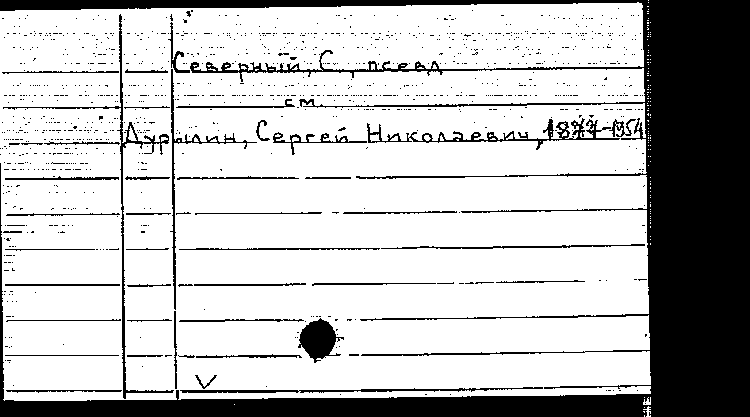 Северный, С., псевд
см.
Дурылин, Сергей Николаевич, 1877-1954